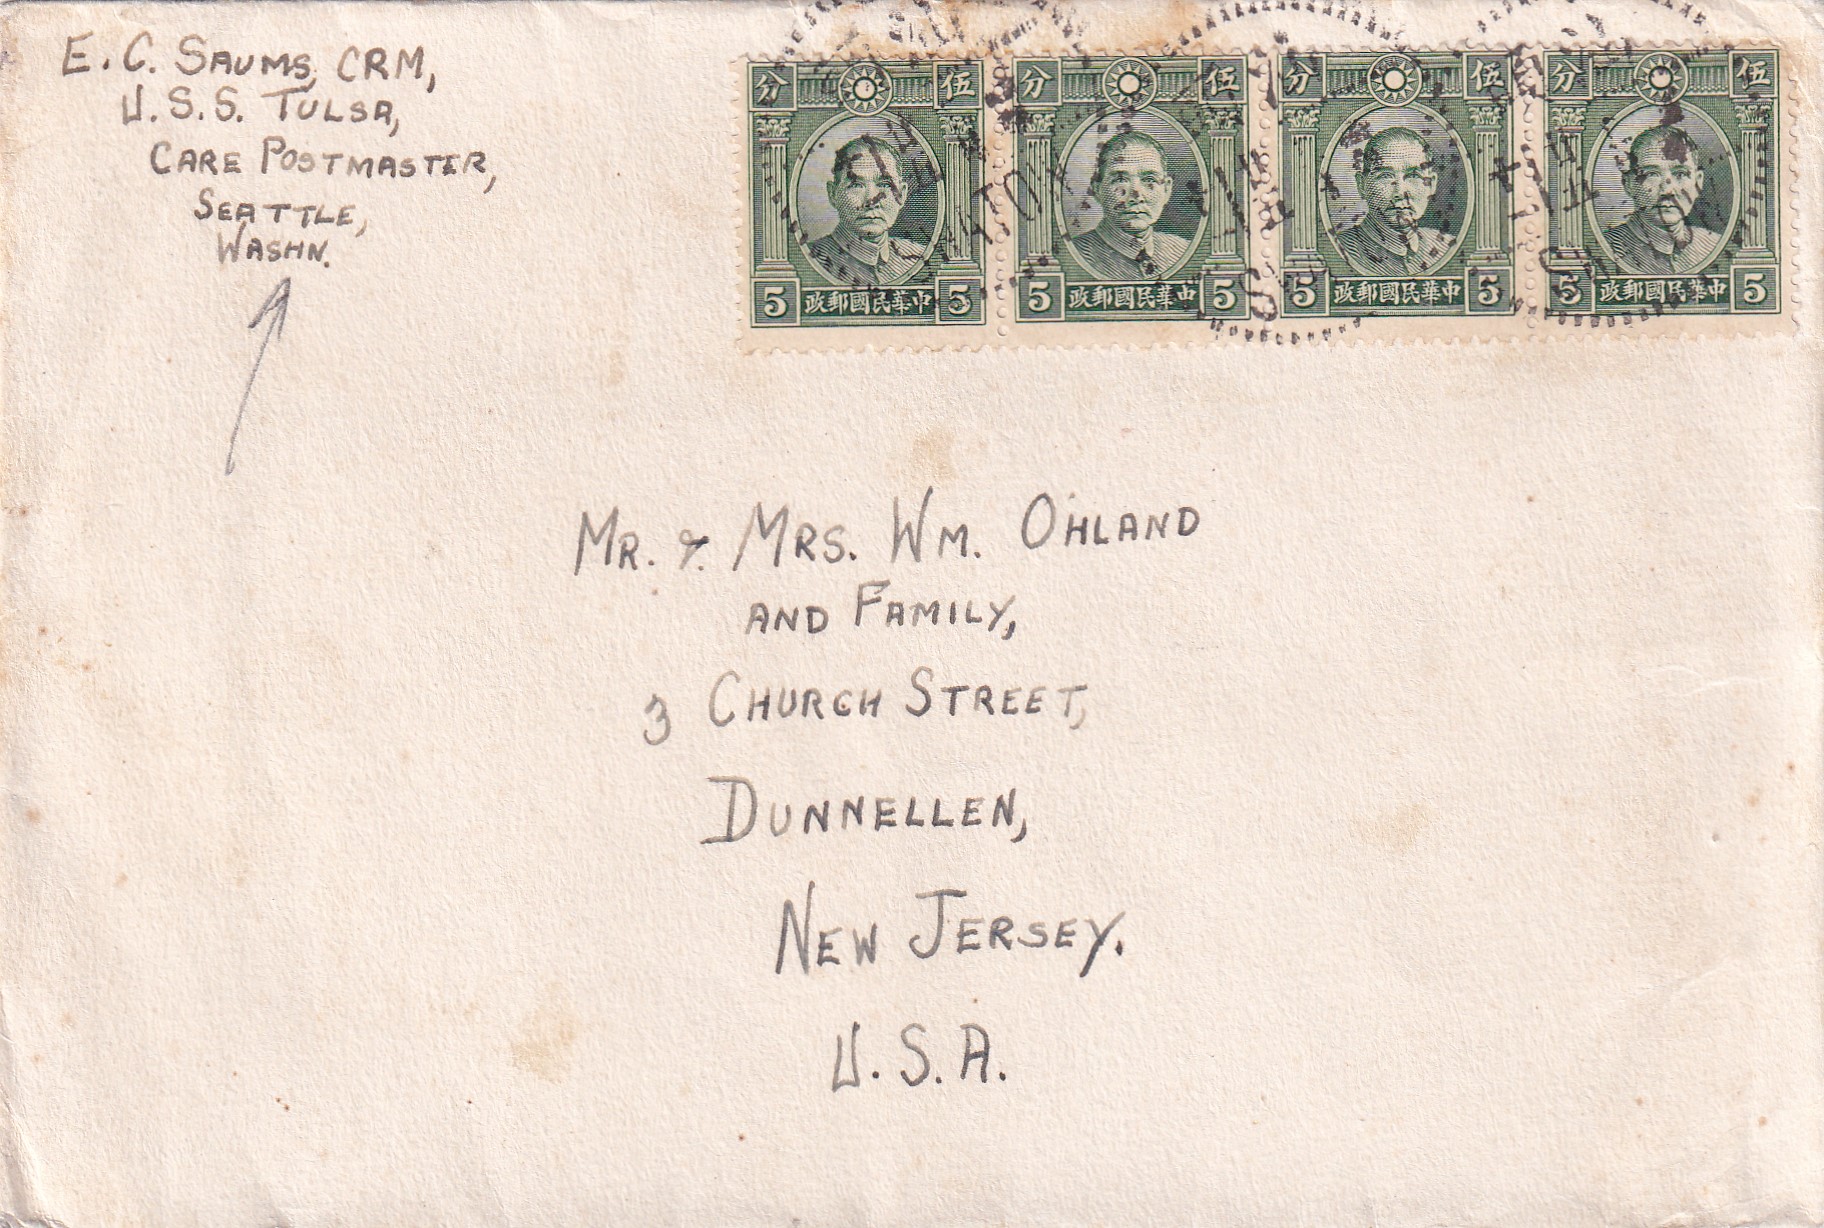 E. C. SAUMS, CRM,
U.S.S. TULSA,
CARE POSTMASTER,
SEATTLE,
WASHN.
分 伍 分 伍 分 伍 分 伍
5 政郵國民華中 5 5 政郵國民華中 5 5 政郵國民華中 5 5 政郵國民華中 5
CANTON
MR. & MRS. WM. OHLAND
AND FAMILY,
3 CHURCH STREET,
DUNNELLEN,
NEW JERSEY.
U.S.A.